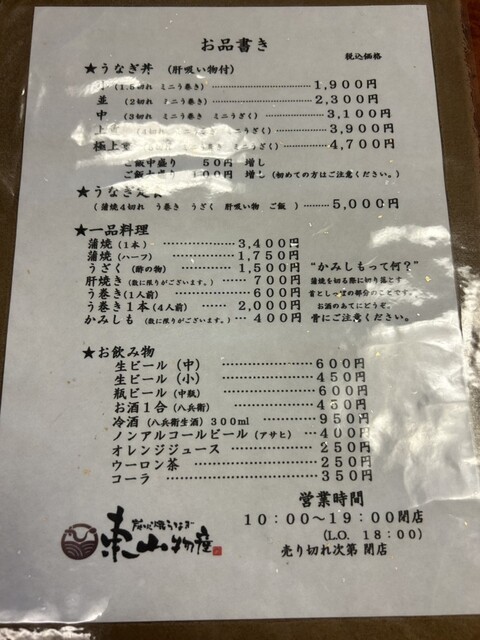 お品書き
税込価格
★うなぎ丼 (肝吸い物付)
(1.5切れ ミニう巻き) 1,900円
並 (2切れ ミニう巻き) 2,300円
中 (3切れ ミニう巻き ミニうざく) 3,100円
上 (4切れ ミニう巻き ミニうざく) 3,900円
極上 ミニうざく) 4,700円
ご飯中盛り 50円 増し
100円 増し (初めての方はご注意ください。)
★うなぎ定食
(蒲焼4切れ う巻き うざく 肝吸い物 ご飯) 5,000円
★一品料理
蒲焼 (1本) 3,400円
蒲焼 (ハーフ) 1,750円
うざく (酢の物) 1,500円
肝焼き (数に限りがございます。) 700円
う巻き (1人前) 600円
う巻き1本 (4人前) 2,000円
かみしも (数に限りがございます。) 400円
"かみしもって何?"
蒲焼を切る際に切り落とす
首としっぽの部分のことです。
お酒のあてにどうぞ。
骨にご注意ください。
★お飲み物
生ビール (中) 600円
生ビール (小) 450円
瓶ビール (中瓶) 600円
お酒1合 (八兵衛) 430円
冷酒 (八兵衛生酒) 300ml 950円
ノンアルコールビール (アサヒ) 400円
オレンジジュース 250円
ウーロン茶 250円
コーラ 350円
営業時間
10:00〜19:00閉店
(L.O. 18:00)
売り切れ次第 閉店
炭火焼うなぎ
東山物産